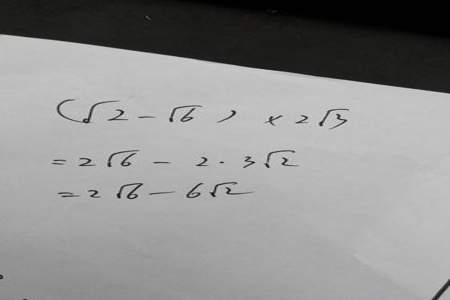 (√2 - √6) × 2√3
= 2√6 - 2 · 3√2
= 2√6 - 6√2